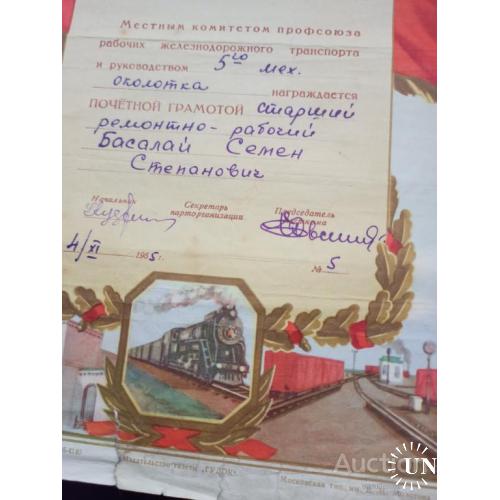 Местным комитетом профсоюза
рабочих железнодорожного транспорта
и руководством 5го мех.
околотка награждается
ПОЧЁТНОЙ ГРАМОТОЙ старший
ремонтно-рабочий
Басалай Семен
Степанович
Начальник Секретарь парторганизации Председатель
4/XI 1955 г. № 5
Издательство газеты „ГУДОК"
Московская тип.
UN